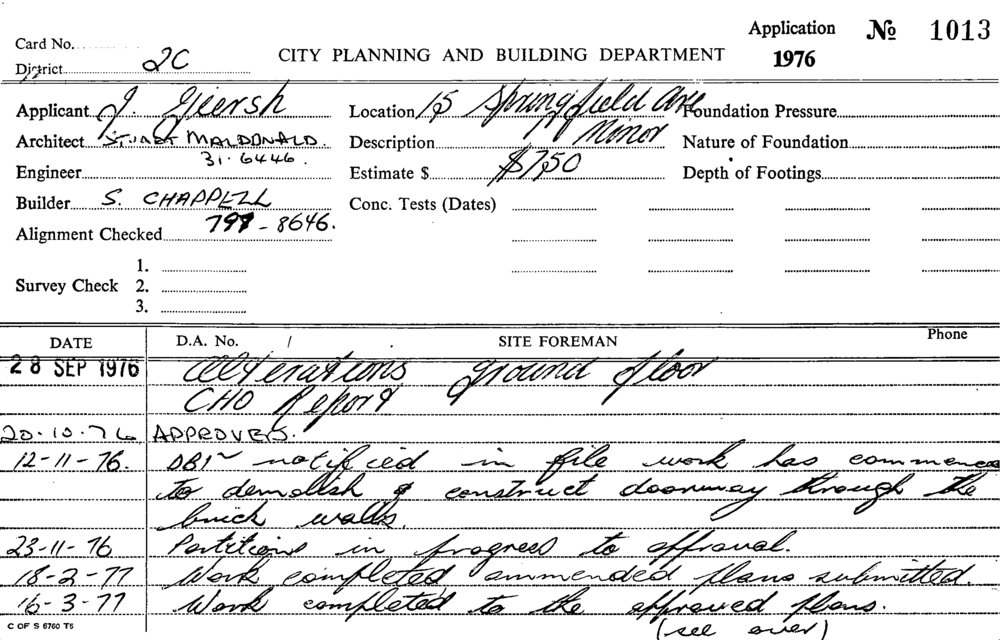 Application № 1013
Card No.
CITY PLANNING AND BUILDING DEPARTMENT 1976
District 2C
Applicant J. Giersh Location 15 Springfield Ave Foundation Pressure
Architect STUART MALDONALD. Description Minor Nature of Foundation
31-6446.
Engineer Estimate $ $750 Depth of Footings
Builder S. CHAPPELL Conc. Tests (Dates)
797-8646.
Alignment Checked
1.
Survey Check 2.
3.
DATE D.A. No. / SITE FOREMAN Phone
28 SEP 1976 Alterations ground floor
CHO Report
20-10-76 APPROVED.
12-11-76. notified in file work has commenced
to demolish & construct doorway through the
brick walls.
23-11-76 Partitions in progress to approval.
18-2-77 Work completed ammended plans submitted.
16-3-77 Work completed to the approved plans.
C OF S 6760 T5 (see over)